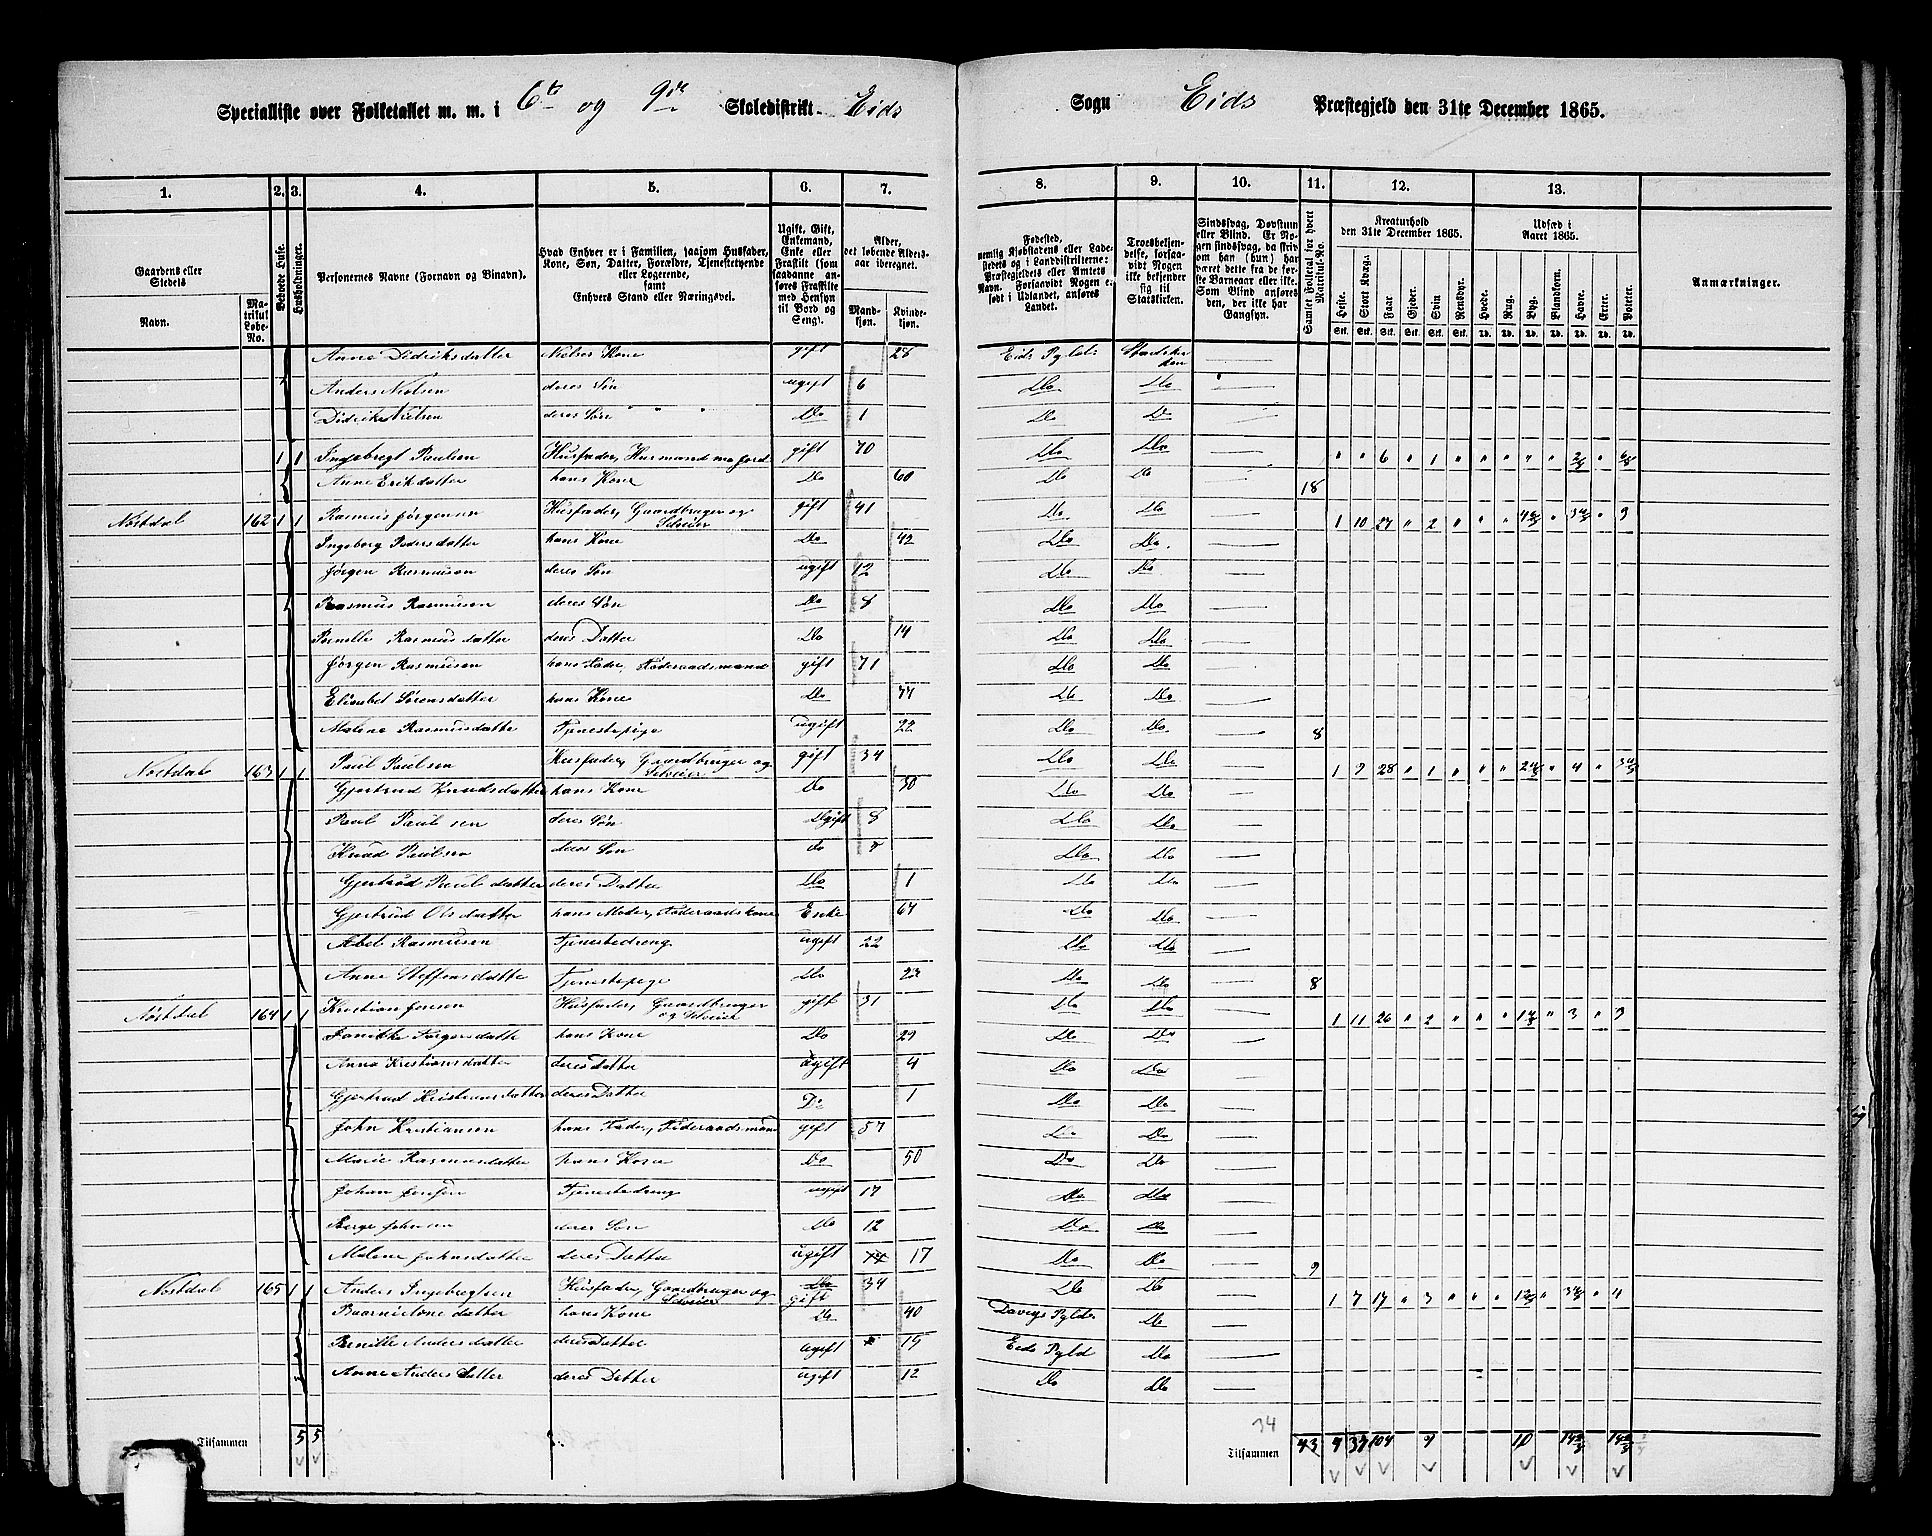 Specialliste over Folketallet m. m. i 6te og 9de Skoledistrikt Eids Sogn Eids Præstegjeld den 31te December 1865.
1. 2. 3. 4. 5. 6. 7. 8. 9. 10. 11. 12. 13.
Gaardens eller Stedets Navn. Matrikul Løbe-No. Beboede Huse. Husholdninger. Personernes Navne (Fornavn og Binavn). Hvad Enhver er i Familien, saasom Husfader, Kone, Søn, Datter, Forældre, Tjenestetyende eller Logerende, samt Enhvers Stand eller Næringsvei. Ugift, Gift, Enkemand, Enke eller Fraskilt (som saadanne anføres Fraskilte med Hensyn til Bord og Seng). Alder, det løbende Aldersaar iberegnet. Mandkjøn. Kvindekjøn.
Fødested, nemlig Kjøbstadens eller Ladestedets og i Landdistrikterne: Præstegjeldets eller Amtets Navn. Forsaavidt Nogen er født i Udlandet, anføres Landet. Troesbekjendelse, forsaavidt Nogen ikke bekjender sig til Statskirken. Sindssvag, Døvstum eller Blind. Er Nogen sindssvag, da skriv om han (hun) har været dette fra de første Barneaar eller ikke. Som Blind anføres den, der ikke har Gangsyn. Samlet Folketal for hvert Matrikul-No. Kreaturhold den 31te December 1865. Heste. Stort Kvæg. Faar. Gjeder. Svin. Rensdyr. Udsæd i Aaret 1865. Hvede. Rug. Byg. Blandkorn. Havre. Erter. Poteter. Anmærkninger.
Anne Didriksdatter Nielses Kone gift 28 Eids Pgld Statskirken
Anders Nielsen deres Søn ugift 6 Do Do
Didrik Nielsen deres Søn Do 1 Do Do
1 1 Ingebregt Paulsen Husfader, Husmand m Jord gift 70 Do Do " " 6 " 1 " " " " "
Anne Eriksdatter hans Kone Do 60 Do Do 18
Nostdal 162 1 1 Rasmus Jørgensen Husfader, Gaardbruger og Selveier gift 41 Do Do 1 10 27 " 2 " " " " " 3
Ingeborg Pedersdatter hans Kone Do 42 Do Do
Jørgen Rasmusen deres Søn ugift 12 Do Do
Rasmus Rasmusen deres Søn Do 8 Do Do
Pernille Rasmusdatter deres Datter Do 14 Do Do
Jørgen Rasmusen hans Fader, Føderaadsmand gift 71 Do Do
Elisabet Sørensdatter hans Kone Do 77 Do Do
Malene Rasmusdatter Tjenestepige ugift 22 Do Do 8
Nostdal 163 1 1 Paul Paulsen Husfader, Gaardbruger og Selveier gift 34 Do Do 1 9 28 " 1 " " " " 4 "
Gjertrud Knudsdatter hans Kone Do 30 Do Do
Paul Paulsen deres Søn Ugift 8 Do Do
Knud Paulsen deres Søn Do Do Do
Gjertrud Paulsdatter deres Datter Do 1 Do Do
Gjertrud Olsdatter hans Moder, Føderaadskone Enke 67 Do Do
Abel Rasmusen Tjenestedreng ugift 22 Do Do
Anne Steffensdatter Tjenestepige Do 23 Do Do 8
Nostdal 164 1 1 Kristian Jensen Husfader, Gaardbruger og Selveier gift 31 Do Do 1 11 26 " 2 " " " " 3 " 3
Jørgensdatter hans Kone Do 29 Do Do
Anna Kristiansdatter deres Datter ugift 4 Do Do
Gjertrud Kristiansdatter deres Datter Do 1 Do Do
John Kristiansen hans Fader, Føderaadsmand gift 57 Do Do
Marie Rasmusdatter hans Kone Do 50 Do Do
Johan Jensen Tjenestedreng ugift 17 Do Do
Børge Johnsen deres Søn Do 12 Do Do
Malene Johnsdatter deres Datter ugift 17 Do Do 9
Nostdal 165 1 1 Anders Ingebregtsen Husfader, Gaardbruger og Selveier Do gift 34 Do Do 1 7 17 " 3 " " " " " 4
hans Kone Do 40 Davigs Pgld Do
Pernille Andersdatter deres Datter ugift 15 Eids Pgld Do
Anne Andersdatter deres Datter ugift 12 Do Do
Tilsammen 5 5 34 Tilsammen 43 4 37 104 9 10